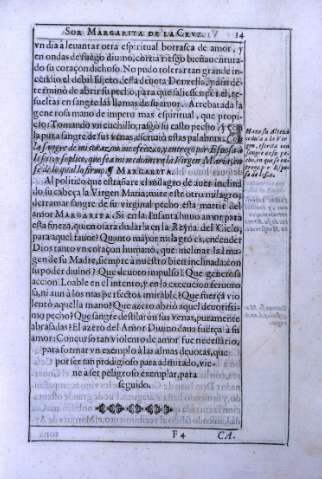 SOR MARGARITA DE LA CRVZ. 34
vn dia à leuantar otra espiritual borrasca de amor, y
en ondas de fuego diuino, corria riesgo bienauentura-
do su coraçon dichoso. No pudo tolerar tan grande in-
cendio el debil sujeto, desta deuota Donzella, y assi de-
terminò de abrir su pecho, para que saliesse por el, re-
sueltas en sangre las llamas de su amor. Arrebatada la
generosa mano de impetu mas espiritual, que propi-
cio: Tomando vn cuchillo, rasgò su casto pecho, y
la pura sangre de sus venas, escriuiò estas palabras:
la sangre de mi coraçon me ofrezco, y entrego por Esposa
Iesus, y suplico, que sea mi medianera la Virgen Maria, en
fè de lo qual lo firmo, ¶ MARGARITA.
Al proposito que està fue el milagro de auer inclina-
do su cabeça la Virgen Maria,
derramar sangre de su virginal pecho, esta martir del
amor MARGARITA. Si en la Infanta huuo amor para
esta fineza, quien osarà dudarla en la Reyna del Cielo,
para aquel fauor? Quanto mayor milagro es, encender
Dios tanto vn coraçon humano, que inclinar la Ima-
gen de su Madre, siempre à nuestro bien inclinada con
su poder diuino? Que deuoto impulso! Que generosa
accion. Loable en el intento, y en la execucion seruoro-
sa, ni aun à los mas perfectos imitable! Que fuerça vio-
lentò aquella mano? Que azero abriò aquel deuotissi-
mo pecho? Que sangre destilaron sus venas, puramente
abrasadas! El azero del Amor Diuino daua fuerça à su
amor: Concurso tan violento de amor fue necessario,
para formar vn exemplo à las almas deuotas, que
por ser tan prodigioso para admirado, vie-
ne à ser peligroso exemplar, para
seguido.
F 4 CA-